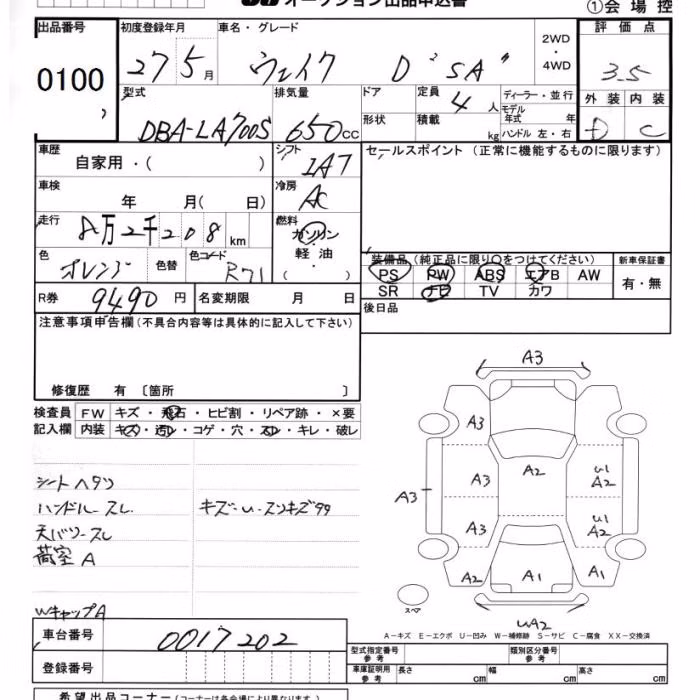 オークション出品申込書
①会場控
出品番号 初度登録年月 車名・グレード 2WD・4WD 評価点
0100 27 5月 ウェイク D "SA" 3.5
外装 内装
D C
型式 排気量 ドア 定員 ディーラー・並行
DBA-LA700S 650cc 4人 モデル年式 年
形状 積載 kg ハンドル 左・右
車歴 自家用・( ) シフト IA7 セールスポイント (正常に機能するものに限ります)
車検 年 月( 日) 冷房 AC
走行 8万2千208km 燃料 ガソリン・軽油・( )
色 オレンジ 色替 色コード R71
装備品 (純正品に限り○をつけてください) 新車保証書
PS PW ABS エアB AW 有・無
SR ナビ TV カワ
R券 9490円 名変期限 月 日 後日品
注意事項申告欄 (不具合内容等は具体的に記入して下さい)
修復歴 有 〔箇所 〕
検査員 FW キズ・飛石・ヒビ割・リペア跡・×要
記入欄 内装 キズ・汚れ・コゲ・穴・スレ・キレ・破レ
シートヘタリ
ハンドルースレ キズ・U・スリキズ99
天バリースレ
荷室A
WキャップA
A3
A3
A3 A2 U1 A2
A3
A3 U1 A2
A2 A1 A1
スペア
UA2
A-キズ E-エクボ U-凹み W-補修跡 S-サビ C-腐食 XX-交換済
車台番号 0017202
登録番号
型式指定番号 参考 類別区分番号 参考
車庫証明用 参考 長さ cm 幅 cm 高さ cm
希望出品コーナー (コーナーは各会場により異なります。)